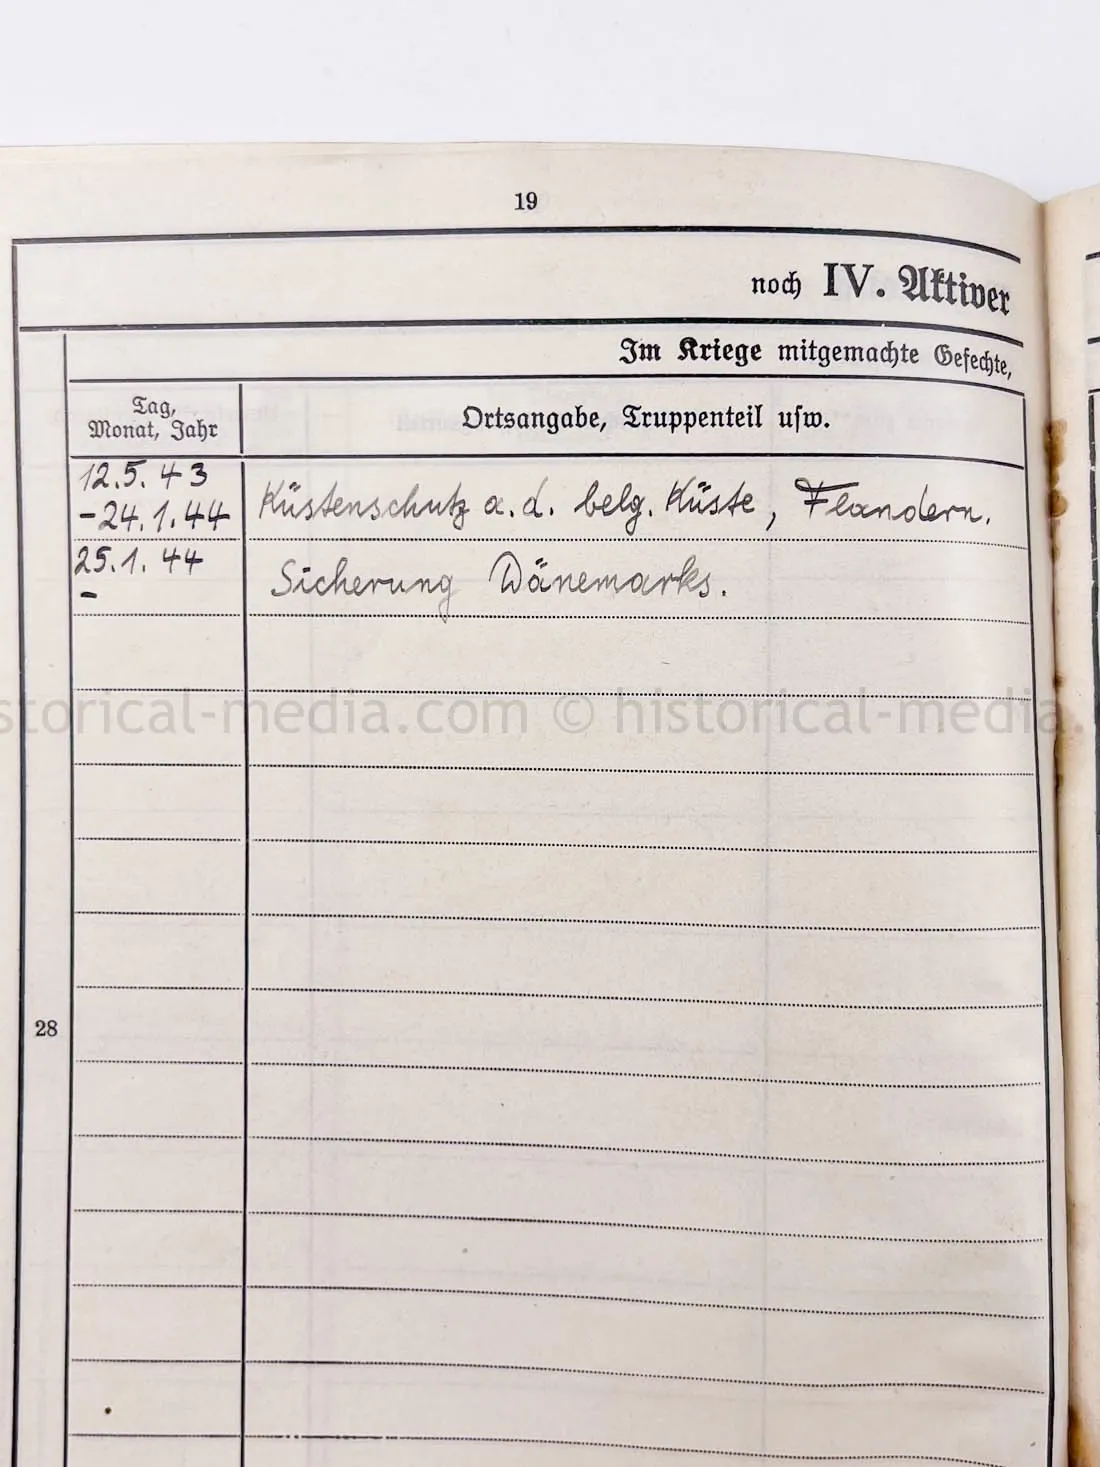 19
noch IV. Aktiver
Im Kriege mitgemachte Gefechte,
Tag,
Monat, Jahr
Ortsangabe, Truppenteil usw.
12.5.43
-24.1.44
Küstenschutz a.d. belg. Küste, Flandern.
25.1.44
-
Sicherung Dänemarks.
historical-media.com © historical-media.
28